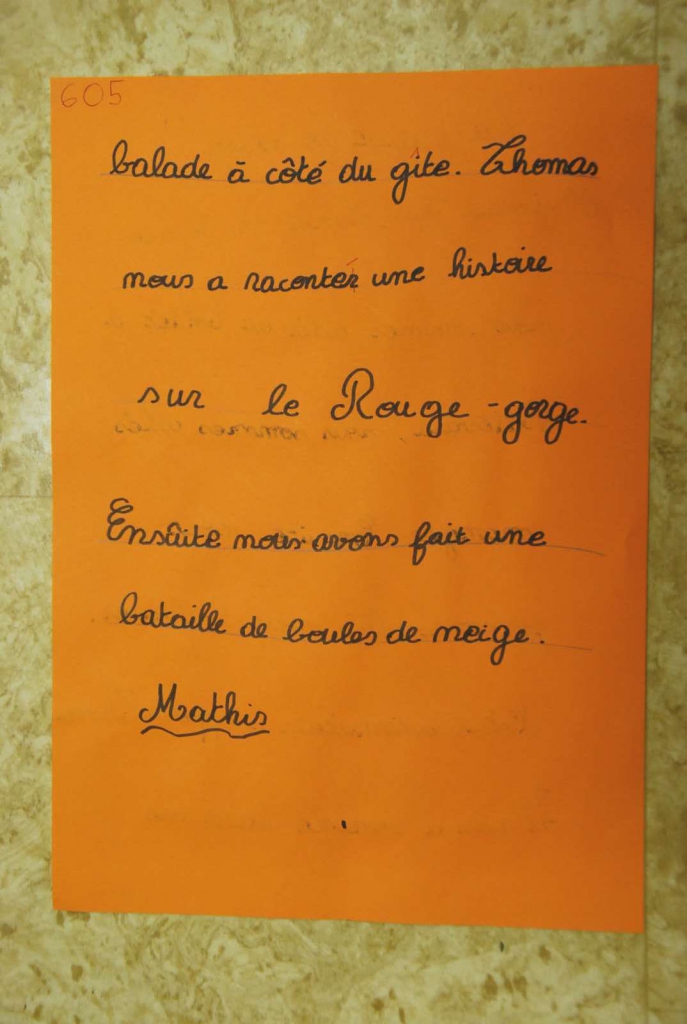 605
balade à côté du gîte. Thomas
nous a raconté une histoire
sur le Rouge-gorge.
Ensûite nous avons fait une
bataille de boules de neige.
Mathis